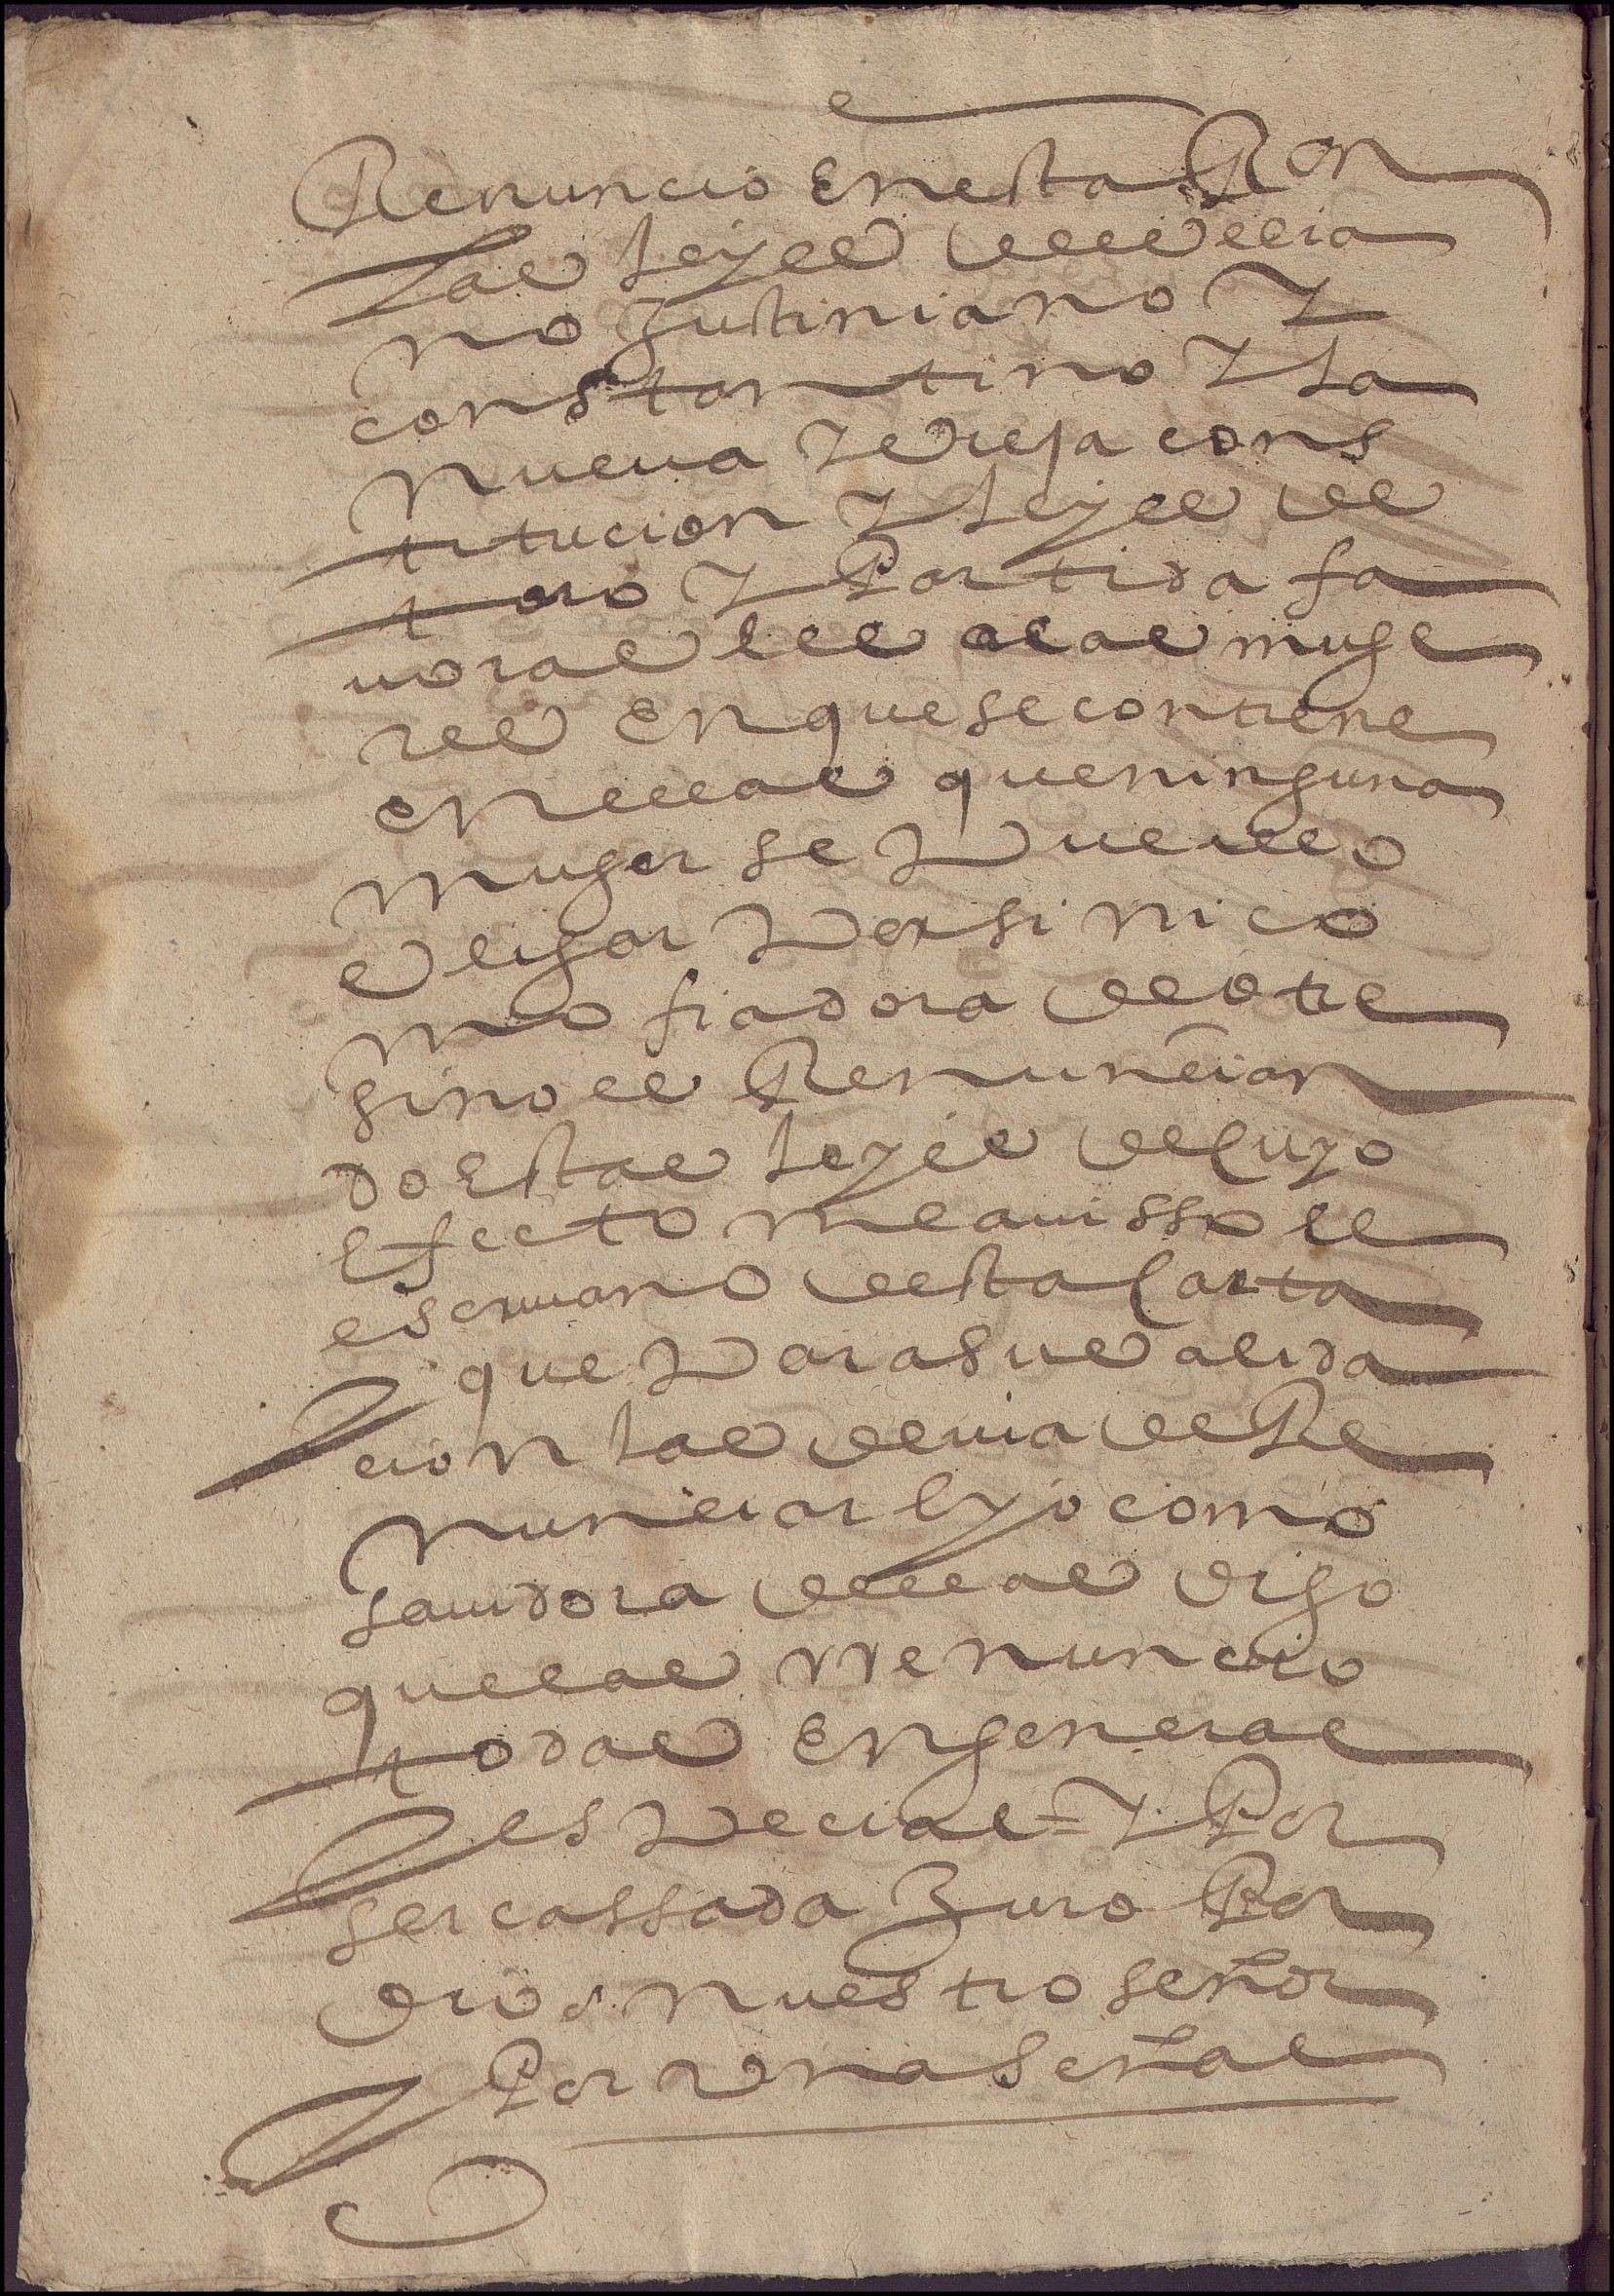 Renuncio en esta Ron
las leyes del velia
no justiniano y
constantino y la
nueva y vieja cons
titucion y leyes de
toro y Partida fa
uorables a las muge
res en que se contiene
en ellas que ninguna
muger se puede o
bligar por si ni co
mo fiadora de otre
sino es Renuncian
do estas leyes de cuyo
efecto me auisso el
escriuano desta carta
y que para su valida
cion las deuia de Re
nunciar e yo como
sauidora dellas digo
que las rrenuncio
todas en general
y especial = y Por
ser cassada Juro Por
dios nuestro señor
y Por una señal